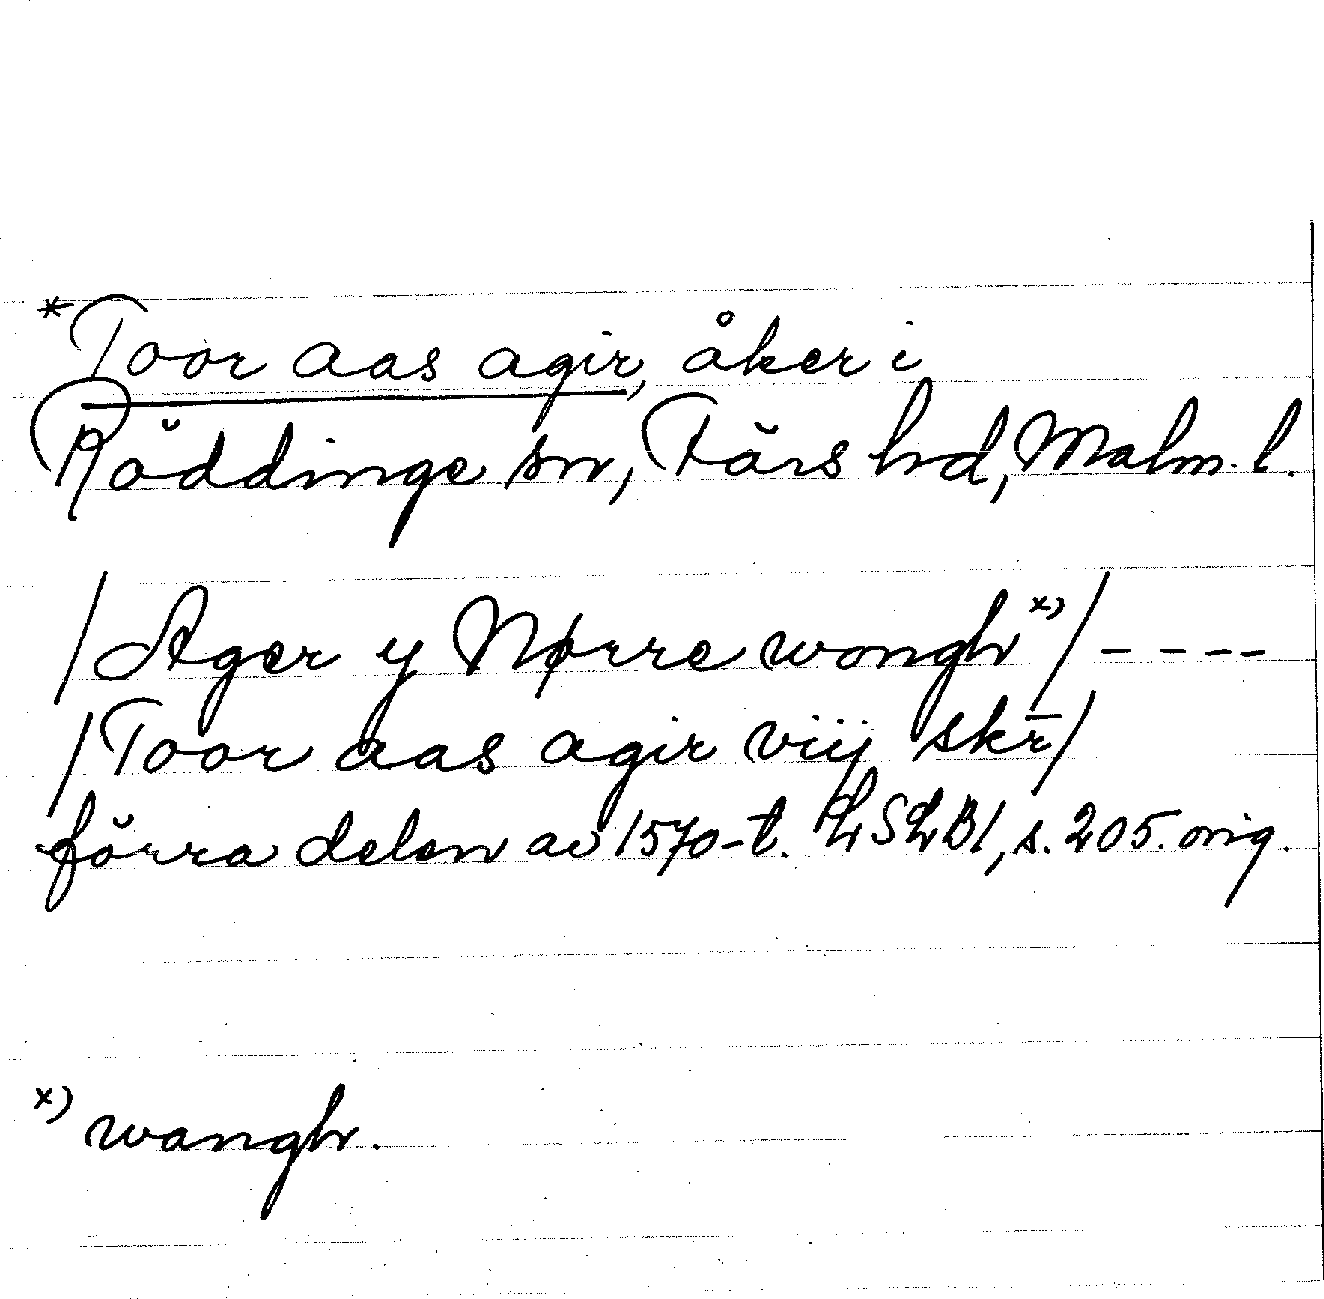 *Toor aas agir, åker i
Röddinge sn, Färs hd, Malm. l.
/Ager y Nørre wongh x)/ ----
/Toor aas agir viij skr̄/
förra delen av 1570-t. LSLB1, s. 205. orig.
x) wangh.